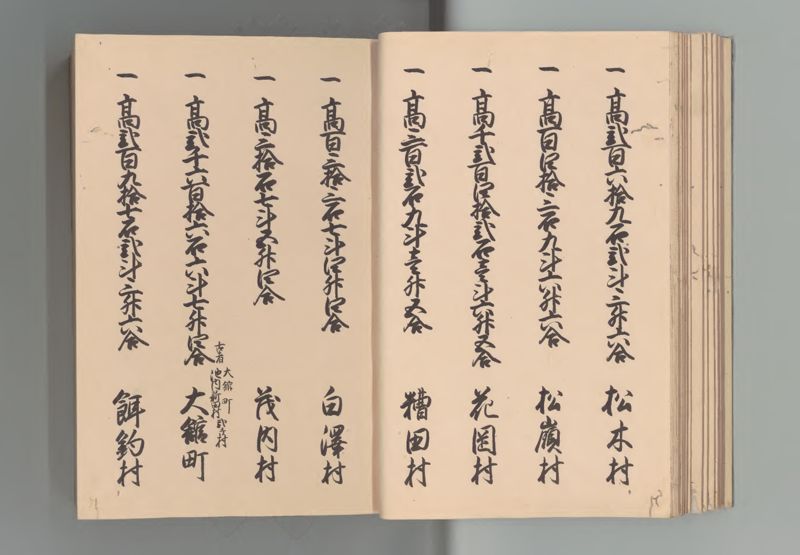 一 高弐百六拾九石弐斗三升六合 松木村
一 高百四拾三石九斗六升六合 松嶺村
一 高千弐百四拾弐石壱斗六升五合 花岡村
一 高三百弐石九斗壱升五合 糟田村
一 高百三拾三石七斗四升四合 白澤村
一 高三拾石七斗五升四合 茂内村
一 高弐千六百拾六石六斗七升四合 大館町
古者 大館町
池内新田村 弐ヶ村
一 高弐百九拾七石弐斗三升六合 餌釣村